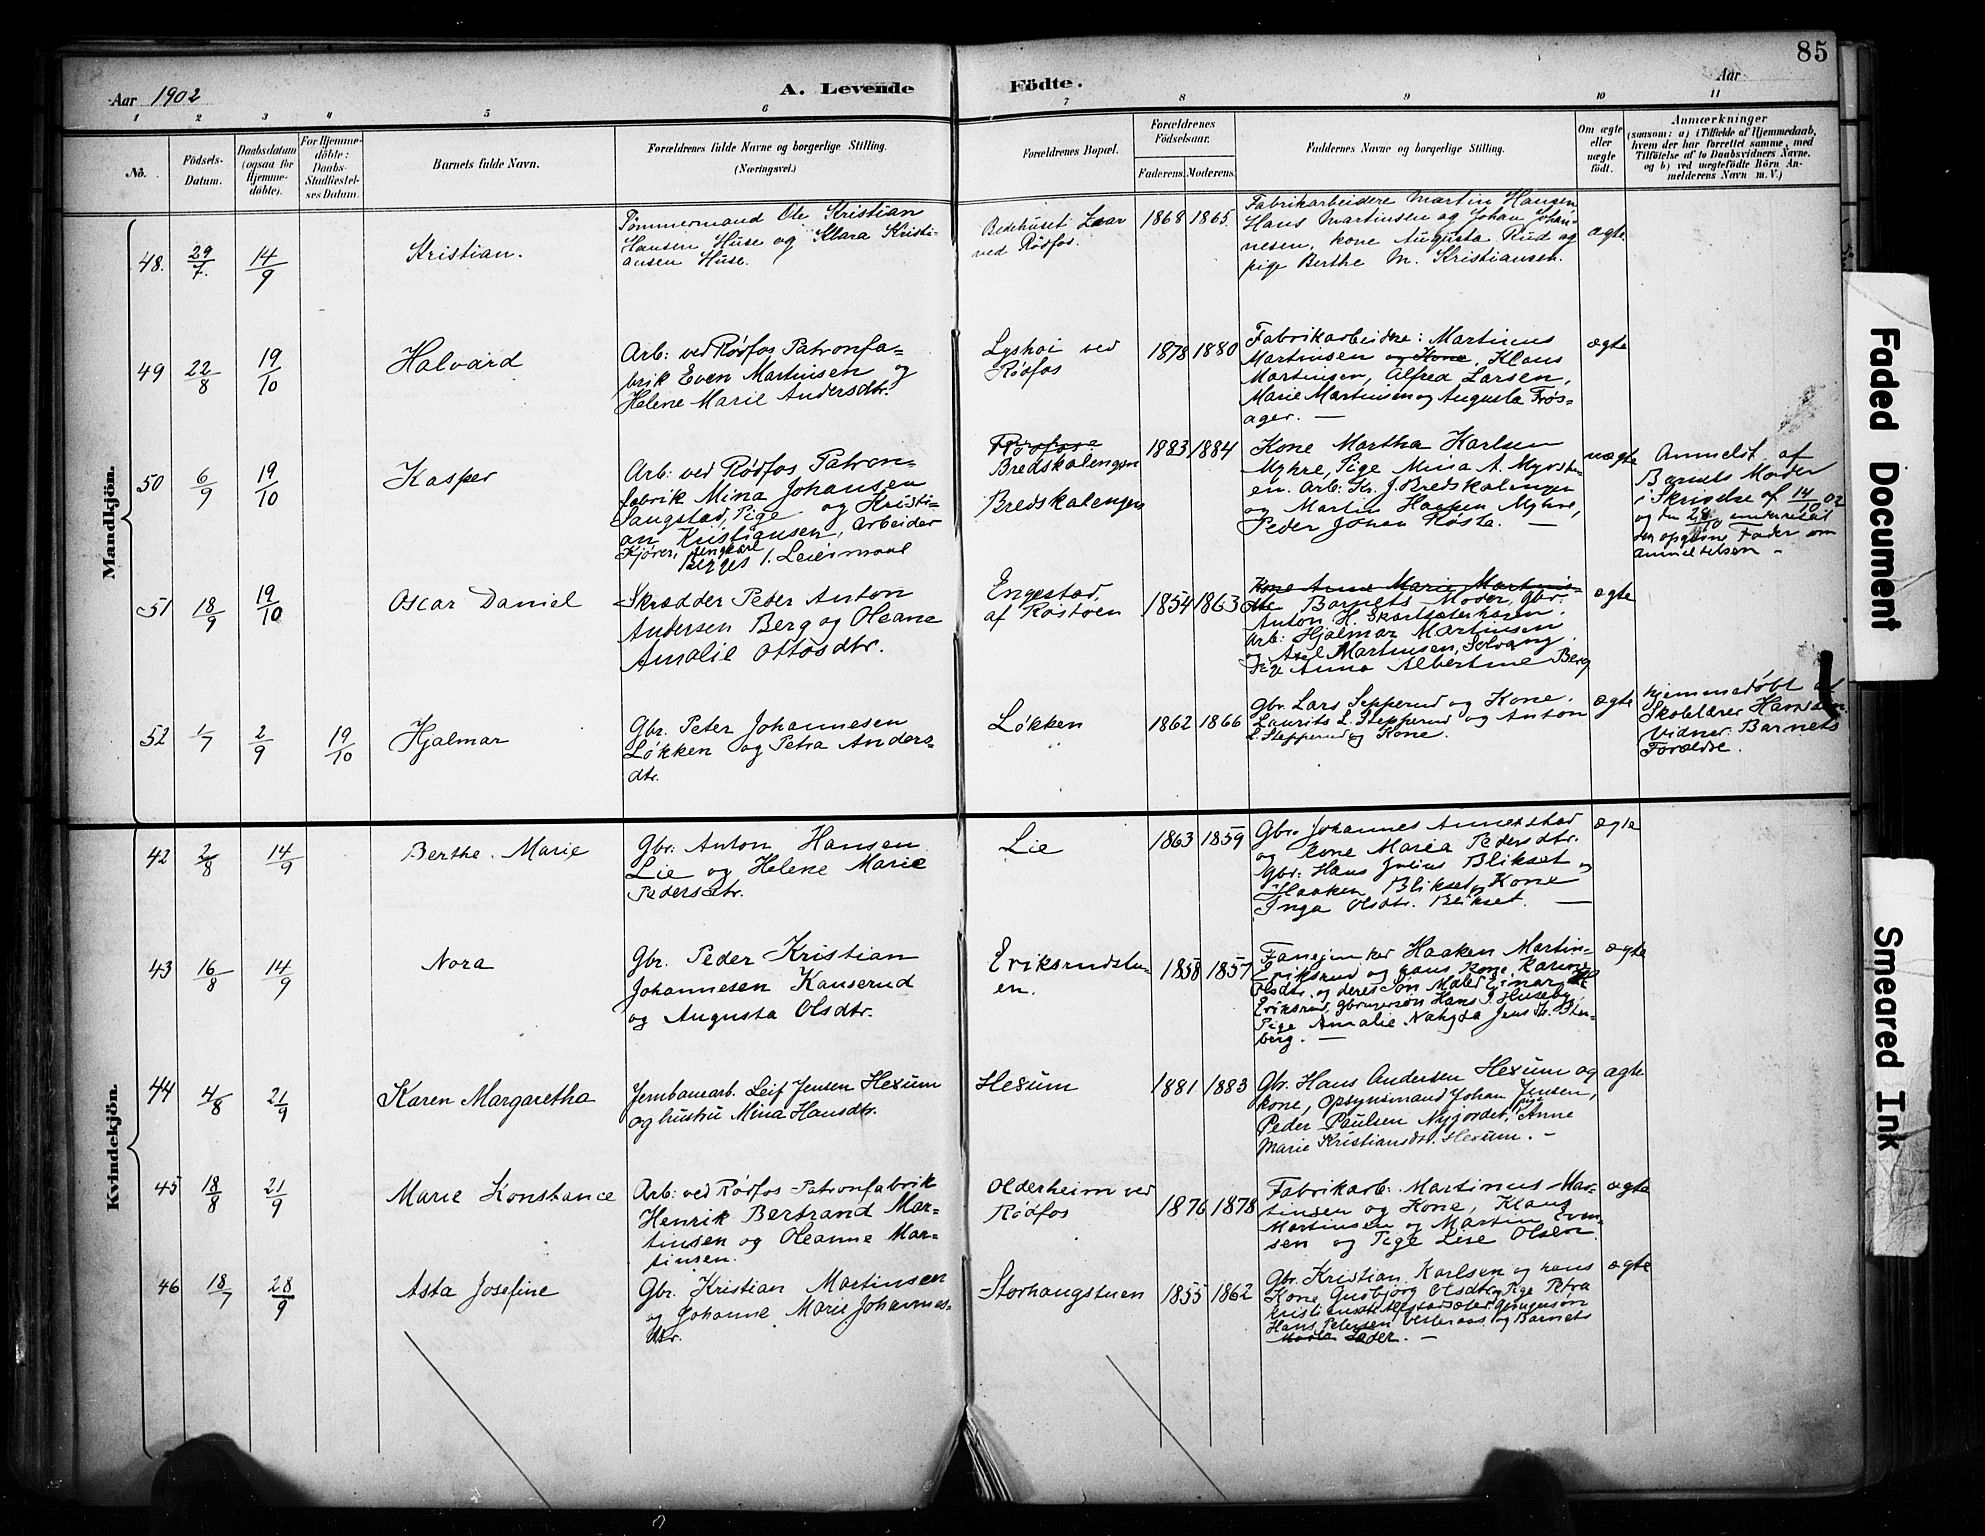 85
Aar 1902
A. Levende
Födte.
Aar
1 2 3 4 5 6 7 8 9 10 11
No.
Födsels-
Datum.
Daabsdatum
(ogsaa for
Hjemme-
döbte).
For Hjemme-
döbte:
Daabs-
Stadfæstel-
ses Datum.
Barnets fulde Navn.
Forældrenes fulde Navne og borgerlige Stilling.
(Næringsvei.)
Forældrenes Bopæl.
Forældrenes
Födselsaar.
Faderens. Moderens.
Faddernes Navne og borgerlige Stilling.
Om ægte
eller
uægte
födt.
Anmærkninger
(saasom: a) i Tilfælde af Hjemmedaab,
hvem der har forrettet samme, med
Tilföielse af to Daabsvidners Navne.
og b) ved uægtefödte Börn An-
melderens Navn m. V.)
Mandkjön.
48. 29/7. 14/9
Kristian.
Tømmermand Ole Kristian
Hansen Huse og Klara Kristi-
ansen Huse.
Bedehuset Laar
ved Rødfos.
1868 1865.
Fabrikarbeidere Martin Hansen,
Hans Martinsen og Johan Johan-
nesen, kone Augusta Rud og
pige Berthe M. Kristiansen.
ægte
49 22/8 19/10
Halvard
Arb: ved Rødfos Patronfa-
brik Even Martinsen og
Helene Marie Andersdtr.
Lyshøi ved
Rødfos
1878 1880
Fabrikarbeidere: Martinus
Martinsen og Kone, Klaus
Martinsen, Alfred Larsen,
Marie Martinsen og Augusta Frøs-
ager. —
ægte
50 6/9 19/10
Kasper
Arb: ved Rødfos Patron-
fabrik Mina Johansen
Saugstad, Pige og Kristi-
an Kristiansen, Arbeider
1. Leiermaal
Rødfos
Bredskalengen
Bredskalengen
1883 1884
Kone Martha Karlsen
Myhre, Pige Mina A. Myrstu-
en. Arb: Kr. J. Bredskalengen
og Martin Haaken Myhre,
Peder Johan Røste. —
uægte
Anmeldt af
Barnets Moder
i Skrivelse af 14/10 02
og den 28/10 underrettet
den opgivne Fader om
anmeldelsen —
51 18/9 19/10
Oscar Daniel
Skrædder Peter Anton
Andersen Berg og Oleane
Amalie Ottosdtr.
Engestad,
af Røstøen
1854 1863
Kone Anne Marie Martinis-
dtr. Barnets Moder, Gbr.
Anton H. Skartsæterhagen
Arb: Hjalmar Martinsen
og Axel Martinsen, Solvang.
Pige Anna Albertine Berg
ægte
52 1/7 2/9 19/10
Hjalmar
Gbr. Peter Johannesen
Løkken og Petra Anders-
dtr.
Løkken
1862 1866
Gbr. Lars Sepperud og Kone.
Laurits L. Stepperud og Anton
L. Stepperud og Kone.
ægte
hjemmedøbt af
Skolelærer Hansen.
Vidner. Barnets
Forældre.
Kvindekjön.
42 2/8 14/9
Berthe Marie
Gbr: Anton Hansen
Lie og Helene Marie
Pedersdtr.
Lie
1863 1859
Gbr. Johannes Annetstad
og kone Maria Pedersdtr.
Gbr: Hans Julius Blikset og
Haaken Blikset, Kone
Inga Olsdtr. Blikset. —
ægte
43 16/8 14/9
Nora
Gbr. Peder Kristian
Johannesen Kauserud
og Augusta Olsdtr.
Eriksrudstu-
en.
1858 1857
Fanejunker Haaken Martin-
Eriksrud og hans kone Karine
Olsdtr. og deres Søn Maler Einar
Eriksrud, gbrugersøn Hans J. Huseby,
Pige Amalie
berg. —
ægte
44 4/8 21/9
Karen Margaretha
Jernbanearb. Leif Jensen Hexum
og hustru Mina Hansdtr.
Hexum
1881 1883
Gbr. Hans Andersen Hexum og
kone, opsynsmand Johan Jensen,
Peder Paulsen Nyjordet, pige Anne
Marie Kristiansdtr. Hexum. —
ægte
45 18/8 21/9
Marie Konstance
Arb: ved Rødfos Patronfabrik
Henrik Bertrand Mar-
tinsen og Oleanne Mar-
tinsen.
Olderheim ved
Rødfos
1876 1878
Fabrikarb: Martinus Mar-
tinsen og Kone, Klaus
Martinsen og Martin Even-
sen og Pige Lise Olsen.
ægte
46 18/7 28/9
Asta Josefine
Gbr. Kristian Martinsen
og Johanne Marie Johannes-
dtr.
Storhaugstuen
1855 1862
Gbr. Kristian Karlsen og hans
Kone Gudbjørg Olsdtr, Pige Petra
Hans Petersen Vesteraas og Barnets
Fader. —
ægte
Faded Document
Smeared Ink